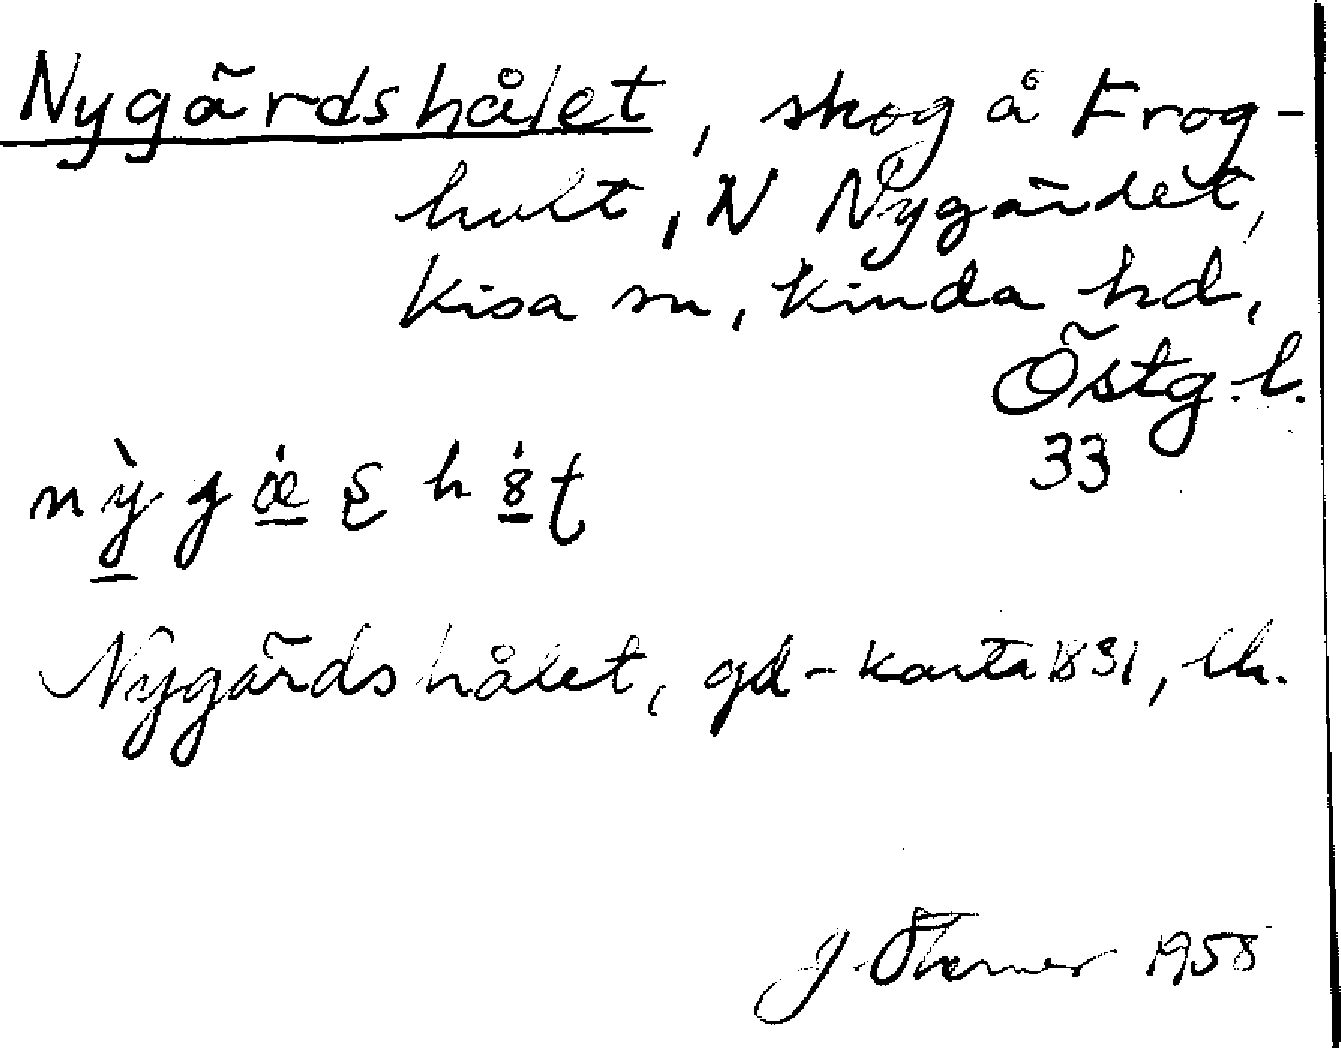 Nygärdshålet, skog å Frog-
hult, N Nygärdet,
Kisa sn, Kinda hd,
Östg. l.
33
Nygärdshålet, gd-karta 1831, lk.
J. Öberner 1958